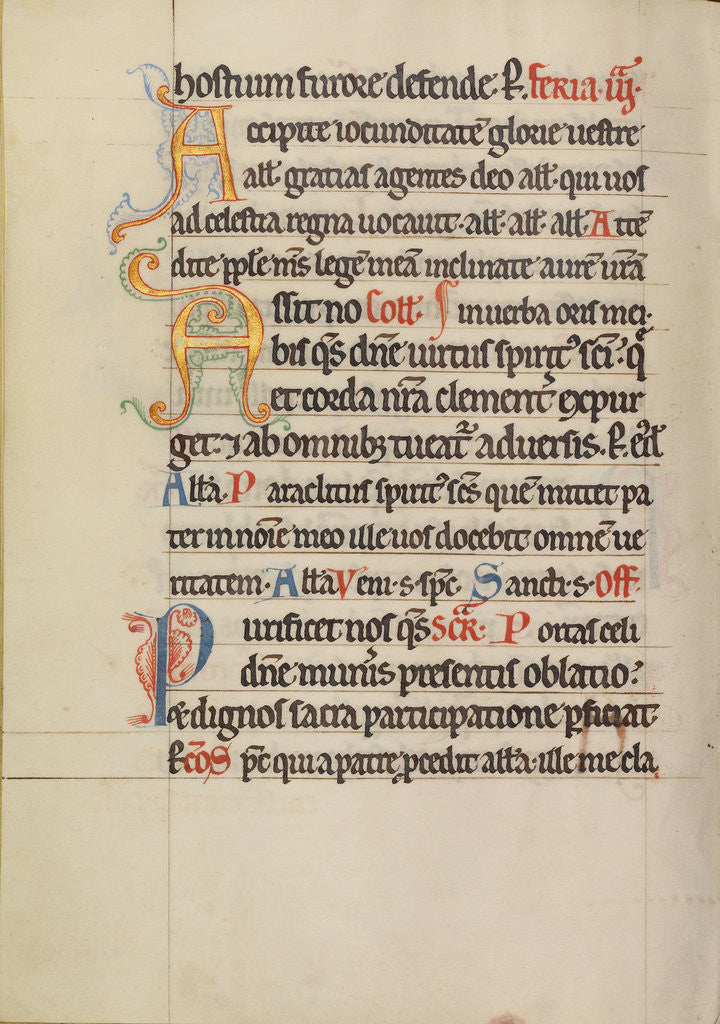 hostium furore defende. R̃. feria .iij.
Accipite iocunditatē glorie uestre
all̃. gratias agentes deo all̃. qui uos
ad celestia regna uocauit. all̃. all̃. all̃. Attē
dite pp̃le m̃s legē meā inclinate aurē ur̃ā
Assit no Coll̃. ſ in uerba oris mei.
bis q̃s dñe uirtus spirit᾽ sc̃i. q̃
et corda nr̃a clement̾ expur
get. ⁊ ab omnibꝫ tueat᷑ aduersis. R̃.
All̃a. Paraclitus spirit᾽ sc̃s quē mittet pa
ter in noīe meo ille uos docebit omnē ue
ritatem. All̃a Veni. s. sp̃c. Sancti. s. Off.
Purificet nos q̃s Scr̃. Portas celi
dñe mun̾is presentis oblatio.᾽
& dignos sacra participatione ꝑficiat.
R̃ cõ Sp̃c qui a patre ꝓcedit all̃a. ille me cla